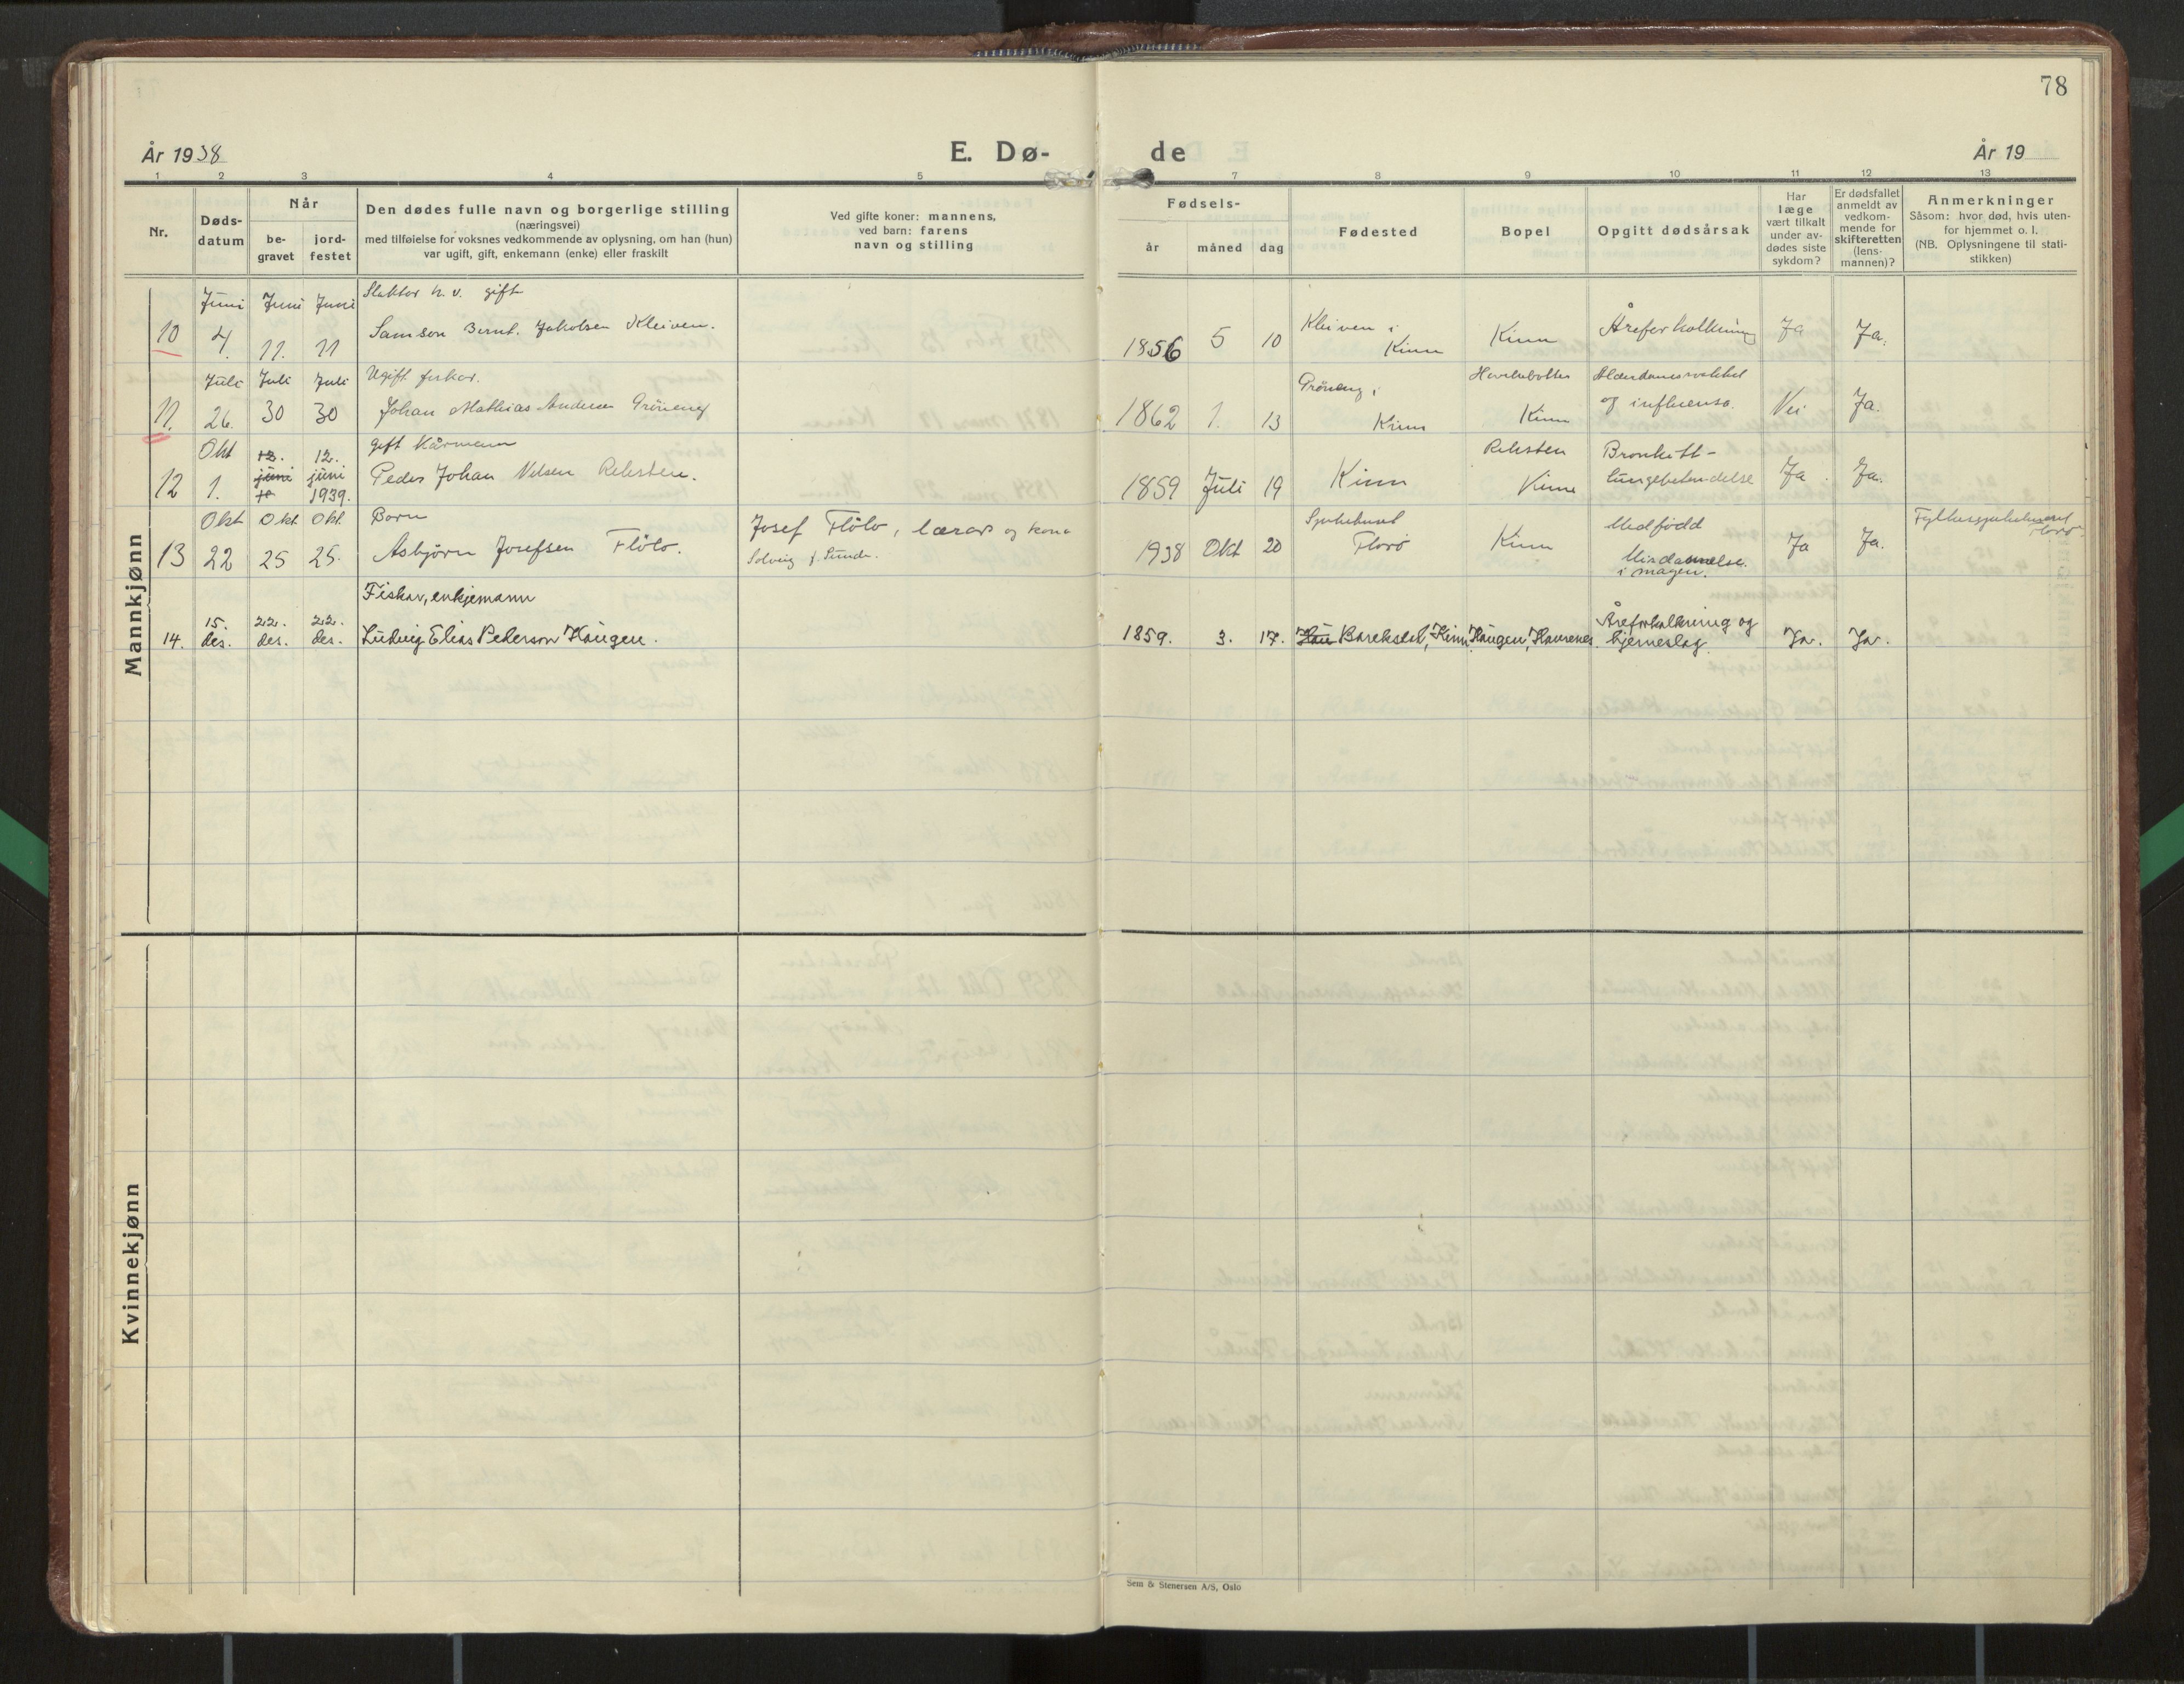 78
År 1938
E. Dø-
de
År 19
1 2 3 4 5 7 8 9 10 11 12 13
Nr.
Døds-
datum
Når
be-
gravet
jord-
festet
Den dødes fulle navn og borgerlige stilling
(næringsvei)
med tilføielse for voksnes vedkommende av oplysning, om han (hun)
var ugift, gift, enkemann (enke) eller fraskilt
Ved gifte koner: mannens,
ved barn: farens
navn og stilling
Fødsels-
år
måned
dag
Fødested
Bopel
Opgitt dødsårsak
Har
læge
vært tilkalt
under av-
dødes siste
sykdom?
Er dødsfallet
anmeldt av
vedkom-
mende for
skifteretten
(lens-
mannen)?
Anmerkninger
Såsom: hvor død, hvis uten-
for hjemmet o. l.
(NB. Oplysningene til stati-
stikken)
Mannkjønn
Juni Juni Juni gift
10 4. 11. 11 Samson Bernt. Jakobsen Kleiven. 1856 5 10 Kleiven i
Kinn Kinn Åreforkalkning Ja Ja.
Juli Juli Juli Ugift fiskar.
11. 26. 30 30 Johan Mathias Andersen Gröneng 1862 1. 13 Gröneng i
Kinn Kinn
og influensa. Nei Ja.
Okt 12. 12. gift Kårmann
juni juni
12 1. 10 1939. Peder Johan Nilsen Reksten. 1859 Juli 19 Kinn Reksten
Kinn Bronkitt-
lungebetendelse Ja Ja.
Okt Okt Okt. Born
13 22 25 25. Asbjörn Josefsen Flölo. Josef Flölo, lærar og kona
Solveig f. Sunde. 1938 Okt 20 Sjukehuset
Florö Kinn Medfödd
Misdannelse
i magen. Ja Ja. Fylkessjukehuset
Florö.
Fiskar, enkjemann
15. 22. 22.
14. des. des. des. Ludvig Elias Pederson Haugen. 1859. 3. 17. Hau Barekstad, Kinn. Haugen, Havrenes. Åreforkalkning og
hjerneslag. Ja. Ja.
Kvinnekjønn
Sem & Stenersen A/S, Oslo